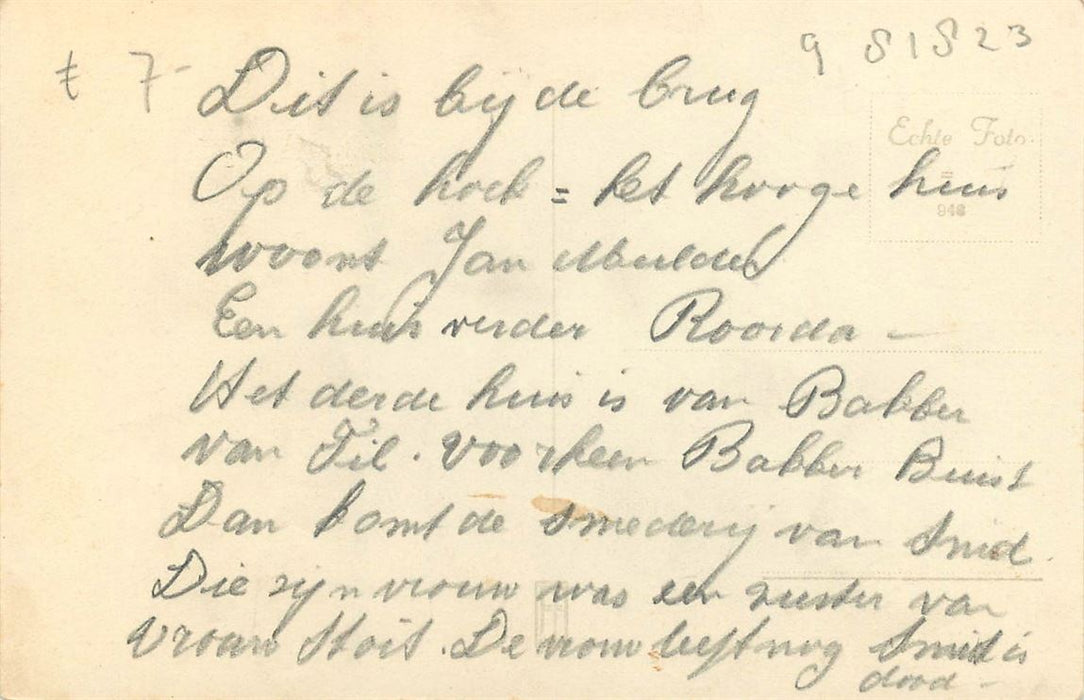 t 7- 9 S1S23
Dit is bij de brug
Echte Foto
Op de hoek = het hooge huis
946
woont Jan Mulder
Een huis verder Roorda -
Het derde huis is van Bakker
van Til. voorheen Bakker Buist
Dan komt de smederij van Smid.
Die zijn vrouw was een zuster van
vrouw Stoit. De vrouw leeft nog Smid is
dood -